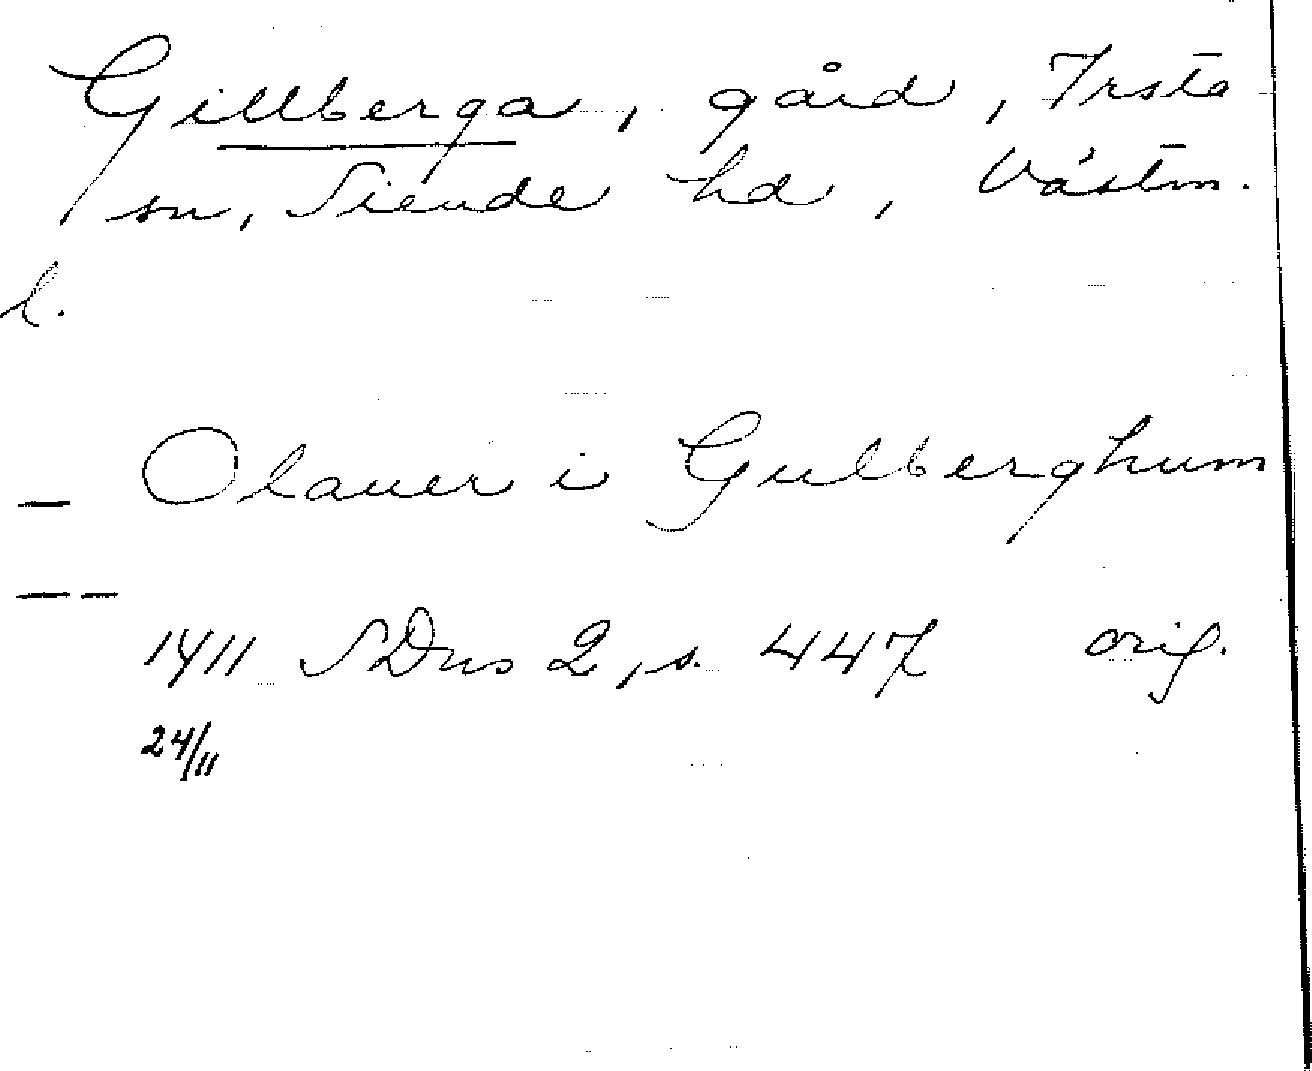 Gillberga, gård, Irsta
sn, Siende hd, Västm.
l.
— Olauer i Gulberghum
— —
1411 SDns 2, s. 447 orig.
24/11